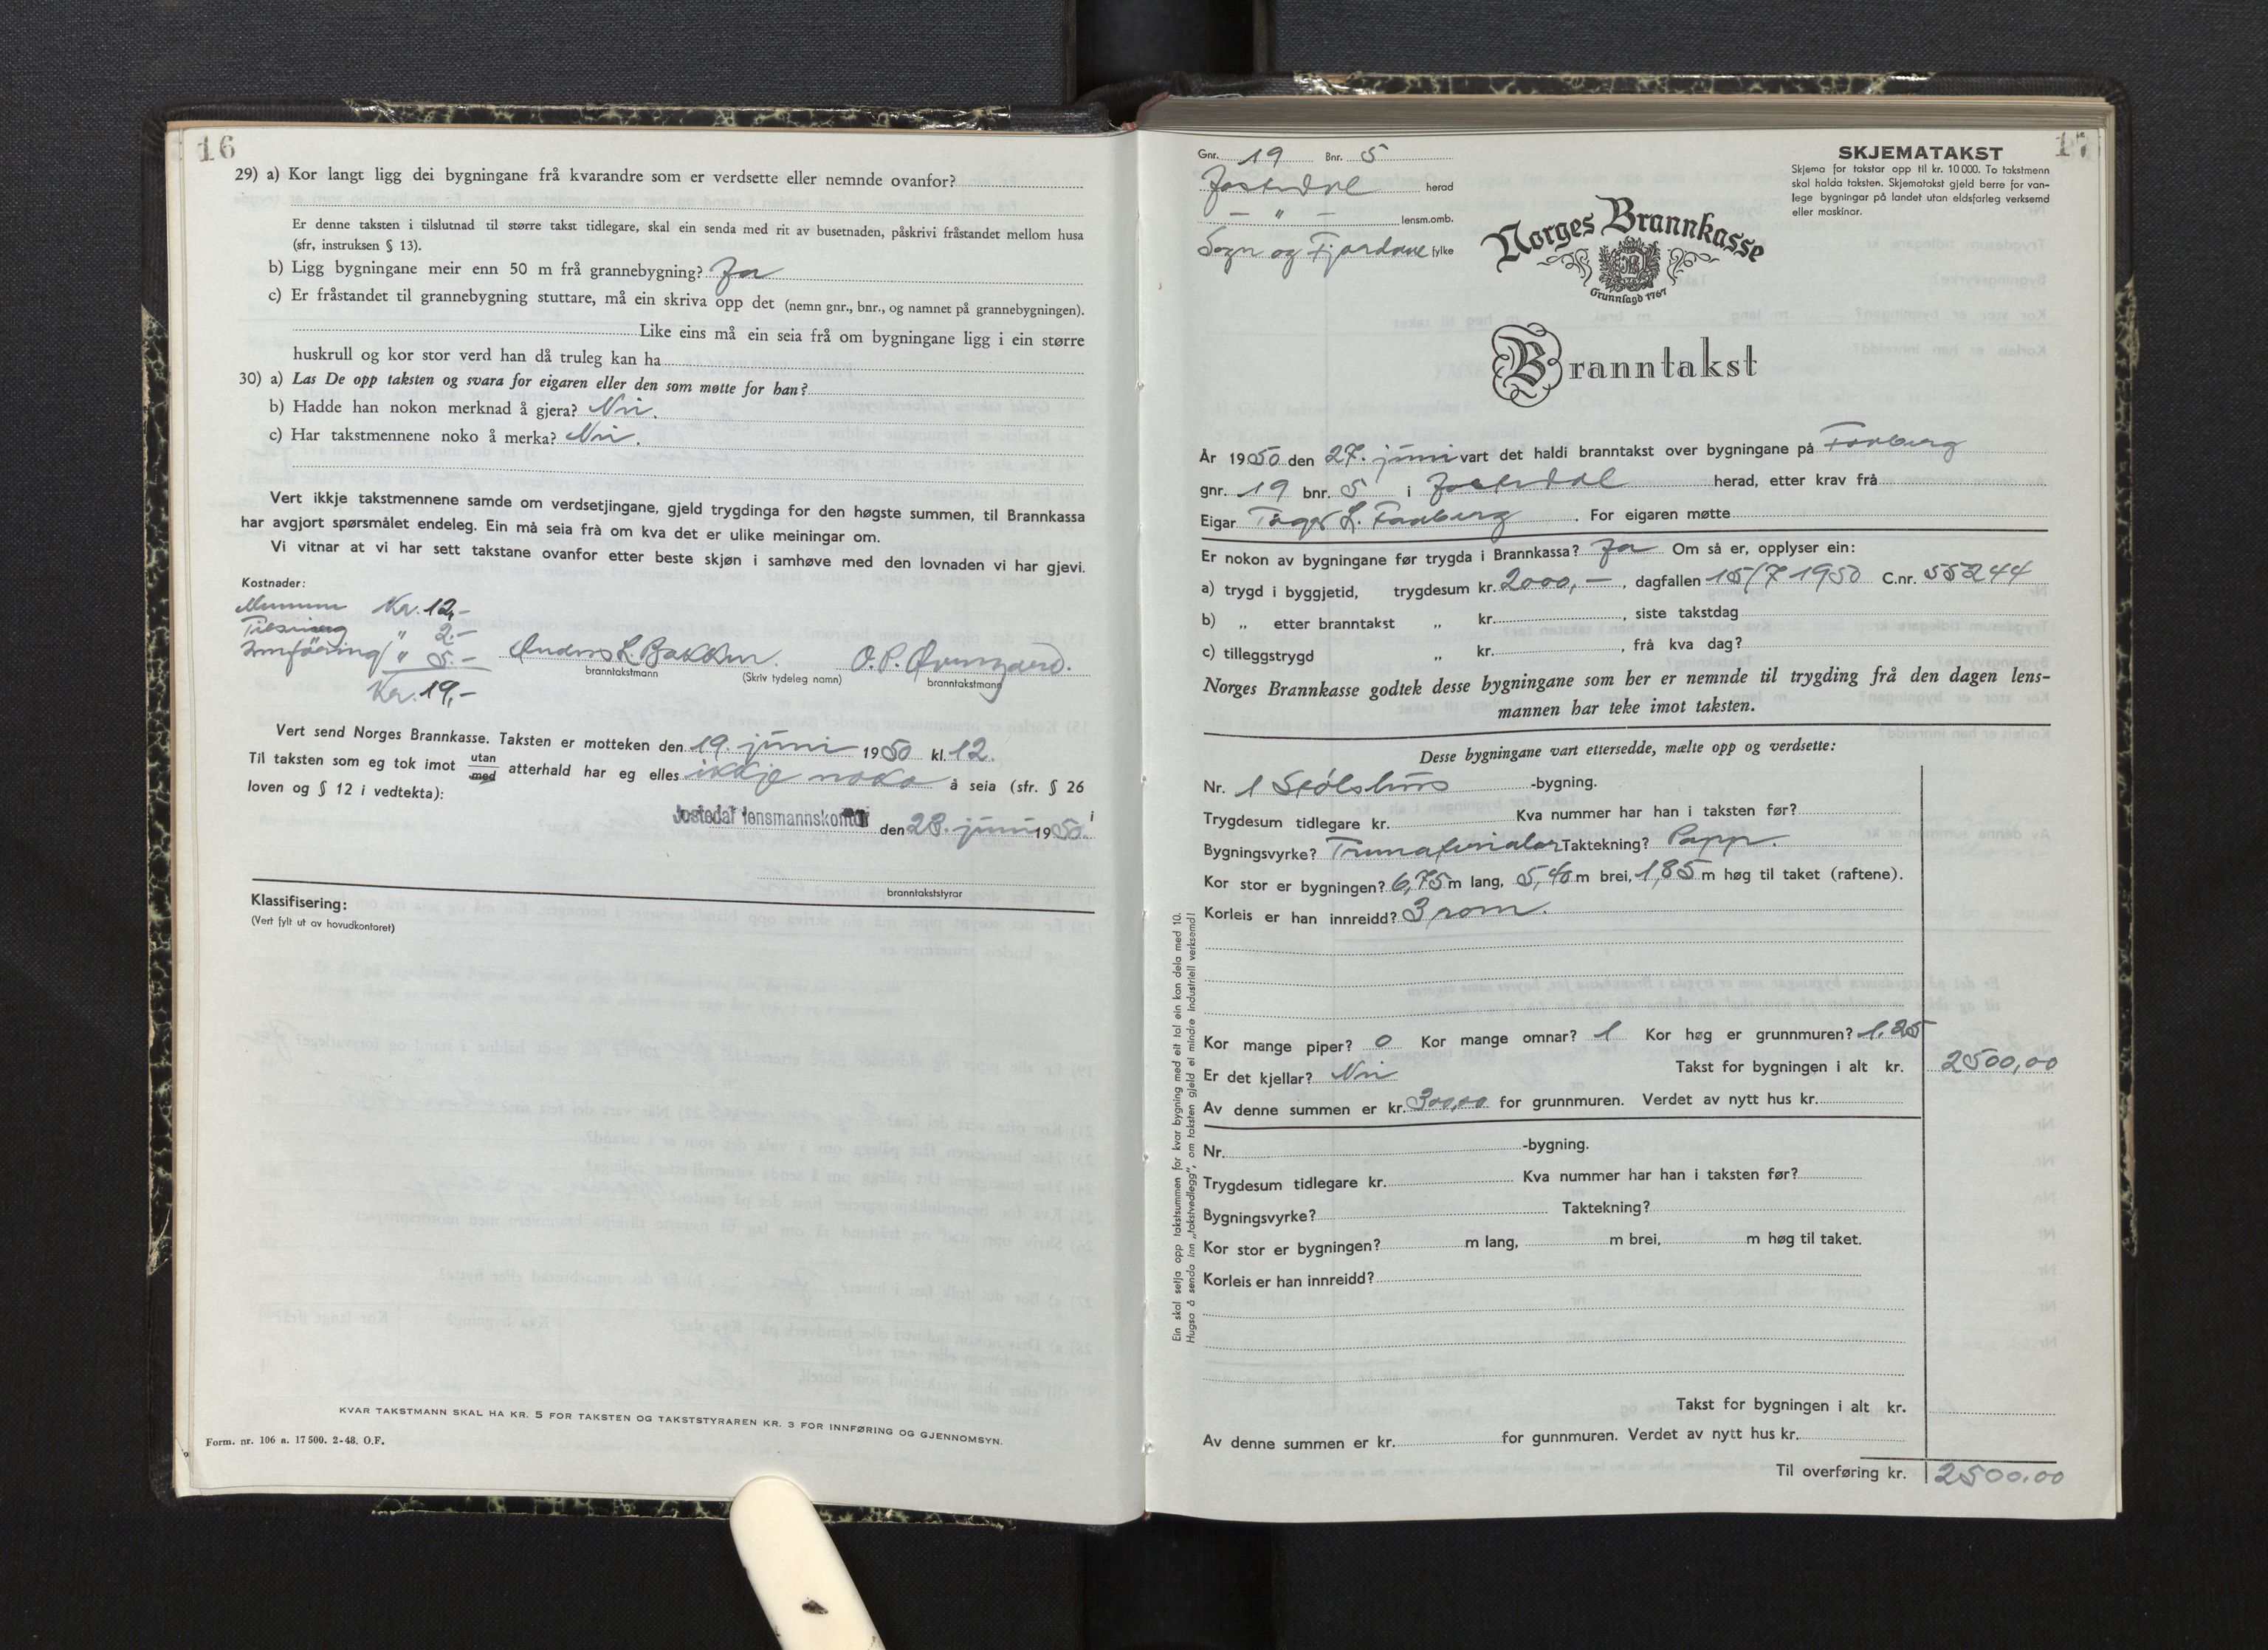 16
29) a) Kor langt ligg dei bygningane frå kvarandre som er verdsette eller nemnde ovanfor?
Er denne taksten i tilslutnad til større takst tidlegare, skal ein senda med rit av busetnaden, påskrivi fråstandet mellom husa
(sfr, instruksen § 13).
b) Ligg bygningane meir enn 50 m frå grannebygning? Ja
c) Er fråstandet til grannebygning stuttare, må ein skriva opp det (nemn gnr., bnr., og namnet på grannebygningen).
Like eins må ein seia frå om bygningane ligg i ein større
huskrull og kor stor verd han då truleg kan ha
30) a) Las De opp taksten og svara for eigaren eller den som møtte for han?
b) Hadde han nokon merknad å gjera? Nei.
c) Har takstmennene noko å merka? Nei.
Vert ikkje takstmennene samde om verdsetjingane, gjeld trygdinga for den høgste summen, til Brannkassa
har avgjort spørsmålet endeleg. Ein må seia frå om kva det er ulike meiningar om.
Vi vitnar at vi har sett takstane ovanfor etter beste skjøn i samhøve med den lovnaden vi har gjevi.
Kostnader:
Kr. 12,-
" 2.-
Innføring " 5.-
Kr. 19,-
Anders L. Bakken. O. P. Øvregaard.
branntakstmann (Skriv tydeleg namn) branntakstmann
Vert send Norges Brannkasse. Taksten er motteken den 19. juni 1950 kl. 12.
Til taksten som eg tok imot utan med atterhald har eg elles ikkje noko å seia (sfr. § 26 i
loven og § 12 i vedtekta):
Jostedal lensmannskontor den 28. juni 1950.
branntakststyrar
Klassifisering:
(Vert fylt ut av hovudkontoret)
KVAR TAKSTMANN SKAL HA KR. 5 FOR TAKSTEN OG TAKSTSTYRAREN KR. 3 FOR INNFØRING OG GJENNOMSYN.
Form. nr. 106 a. 17500. 2-48. O.F.
17
Gnr. 19 Bnr. 5
Jostedal herad
— " — lensm.omb.
Sogn og Fjordane fylke
SKJEMATAKST
Skjema for takstar opp til kr. 10 000. To takstmenn
skal halda taksten. Skjematakst gjeld berre for van-
lege bygningar på landet utan eldsfarleg verksemd
eller maskinar.
Norges Brannkasse
Grunnlagd 1767
Branntakst
År 1950 den 27. juni vart det haldi branntakst over bygningane på Faaberg
gnr. 19 bnr. 5 i Jostedal herad, etter krav frå
Eigar L. Faaberg. For eigaren møtte
Er nokon av bygningane før trygda i Brannkassa? Ja Om så er, opplyser ein:
a) trygd i byggjetid, trygdesum kr. 2000,—, dagfallen 15/7 1950 C.nr. 55244
b) „ etter branntakst „ kr. , siste takstdag
c) tilleggstrygd „ kr. , frå kva dag?
Norges Brannkasse godtek desse bygningane som her er nemnde til trygding frå den dagen lens-
mannen har teke imot taksten.
Desse bygningane vart ettersedde, mælte opp og verdsette:
Nr. 1 Stølshus -bygning.
Trygdesum tidlegare kr. Kva nummer har han i taksten før?
Bygningsvyrke? Trematerialar Taktekning? Papp.
Kor stor er bygningen? 6,75 m lang, 5,40 m brei, 1,85 m høg til taket (raftene).
Korleis er han innreidd? 3 rom.
Kor mange piper? 0 Kor mange omnar? 1 Kor høg er grunnmuren? 1,25
Er det kjellar? Nei Takst for bygningen i alt kr. 2500,00
Av denne summen er kr. 300,00 for grunnmuren. Verdet av nytt hus kr.
Nr. -bygning.
Trygdesum tidlegare kr. Kva nummer har han i taksten før?
Bygningsvyrke? Taktekning?
Kor stor er bygningen? m lang, m brei, m høg til taket.
Korleis er han innreidd?
Takst for bygningen i alt kr.
Av denne summen er kr. for gunnmuren. Verdet av nytt hus kr.
Til overføring kr. 2500.00
Ein skal setja opp takstsummen for kvar bygning med eit tal ein kan dela med 10.
Hugsa å senda inn „takstvedlegg”, om taksten gjeld ei mindre industriell verksemd!